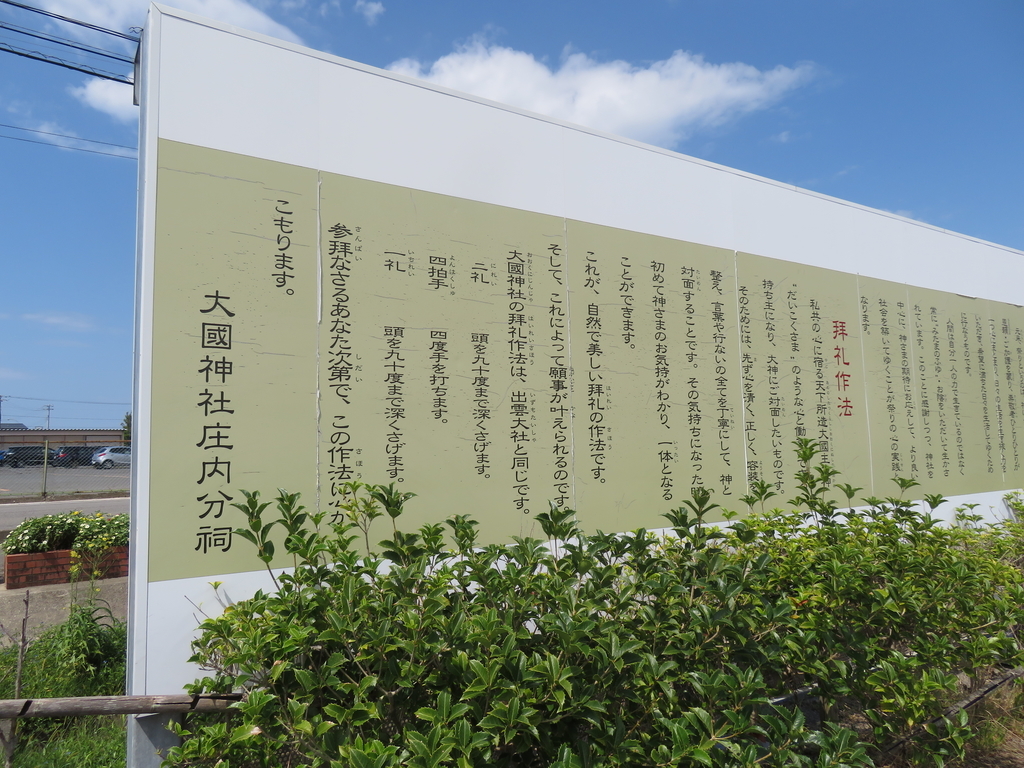 人間は自分一人の力で生きているのではなく
れています。このことに感謝しつつ、神社を
中心に、神さまの期待にお応えして、より良い
社会を築いてゆくことが祭りの心の実践と
なります。
拝礼作法
私共の心に宿る天下所造大國主
"だいこくさま"のような心と働
持ち主になり、大神にご対面したいものです。
そのためには、先ず心を清く、正しく、容姿
整え、言葉や行ないの全てを丁寧にして、神と
対面することです。その気持ちになった時
初めて神さまのお気持がわかり、一体となる
ことができます。
これが、自然で美しい拝礼の作法です。
そして、これによって願事が叶えられるのです
大國神社の拝礼作法は、出雲大社と同じです。
二礼 頭を九十度まで深くさげます。
四拍手 四度手を打ちます。
一礼 頭を九十度まで深くさげます。
参拝なさるあなた次第で、この作法に心が
こもります。
大國神社庄内分祠